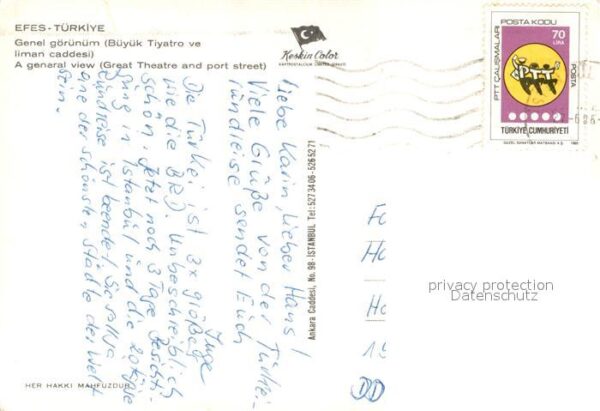 EFES - TÜRKİYE
Genel görünüm (Büyük Tiyatro ve
liman caddesi)
A general view (Great Theatre and port street)
Keskin Color
KARTPOSTALCILIK LİMİTED ŞİRKETİ
Ankara Caddesi, No. 98 - İSTANBUL Tel: 5273406-5265271
Liebe Karin, lieber Hans!
Viele Grüße von der Türkei-
rundreise sendet Euch
Inge
Die Türkei ist 3x größer
wie die BRD. Unbeschreiblich
schön. Jetzt noch 3 Tage Besichti-
gung in Istanbul und die
Rundreise ist beendet. Sie soll
eine der schönsten Städte der Welt
sein.
HER HAKKI MAHFUZDUR
POSTA KODU
70
LİRA
PTT ÇALIŞMALARI
PTT
POSTA
TÜRKİYE CUMHURİYETİ
privacy protection
Datenschutz